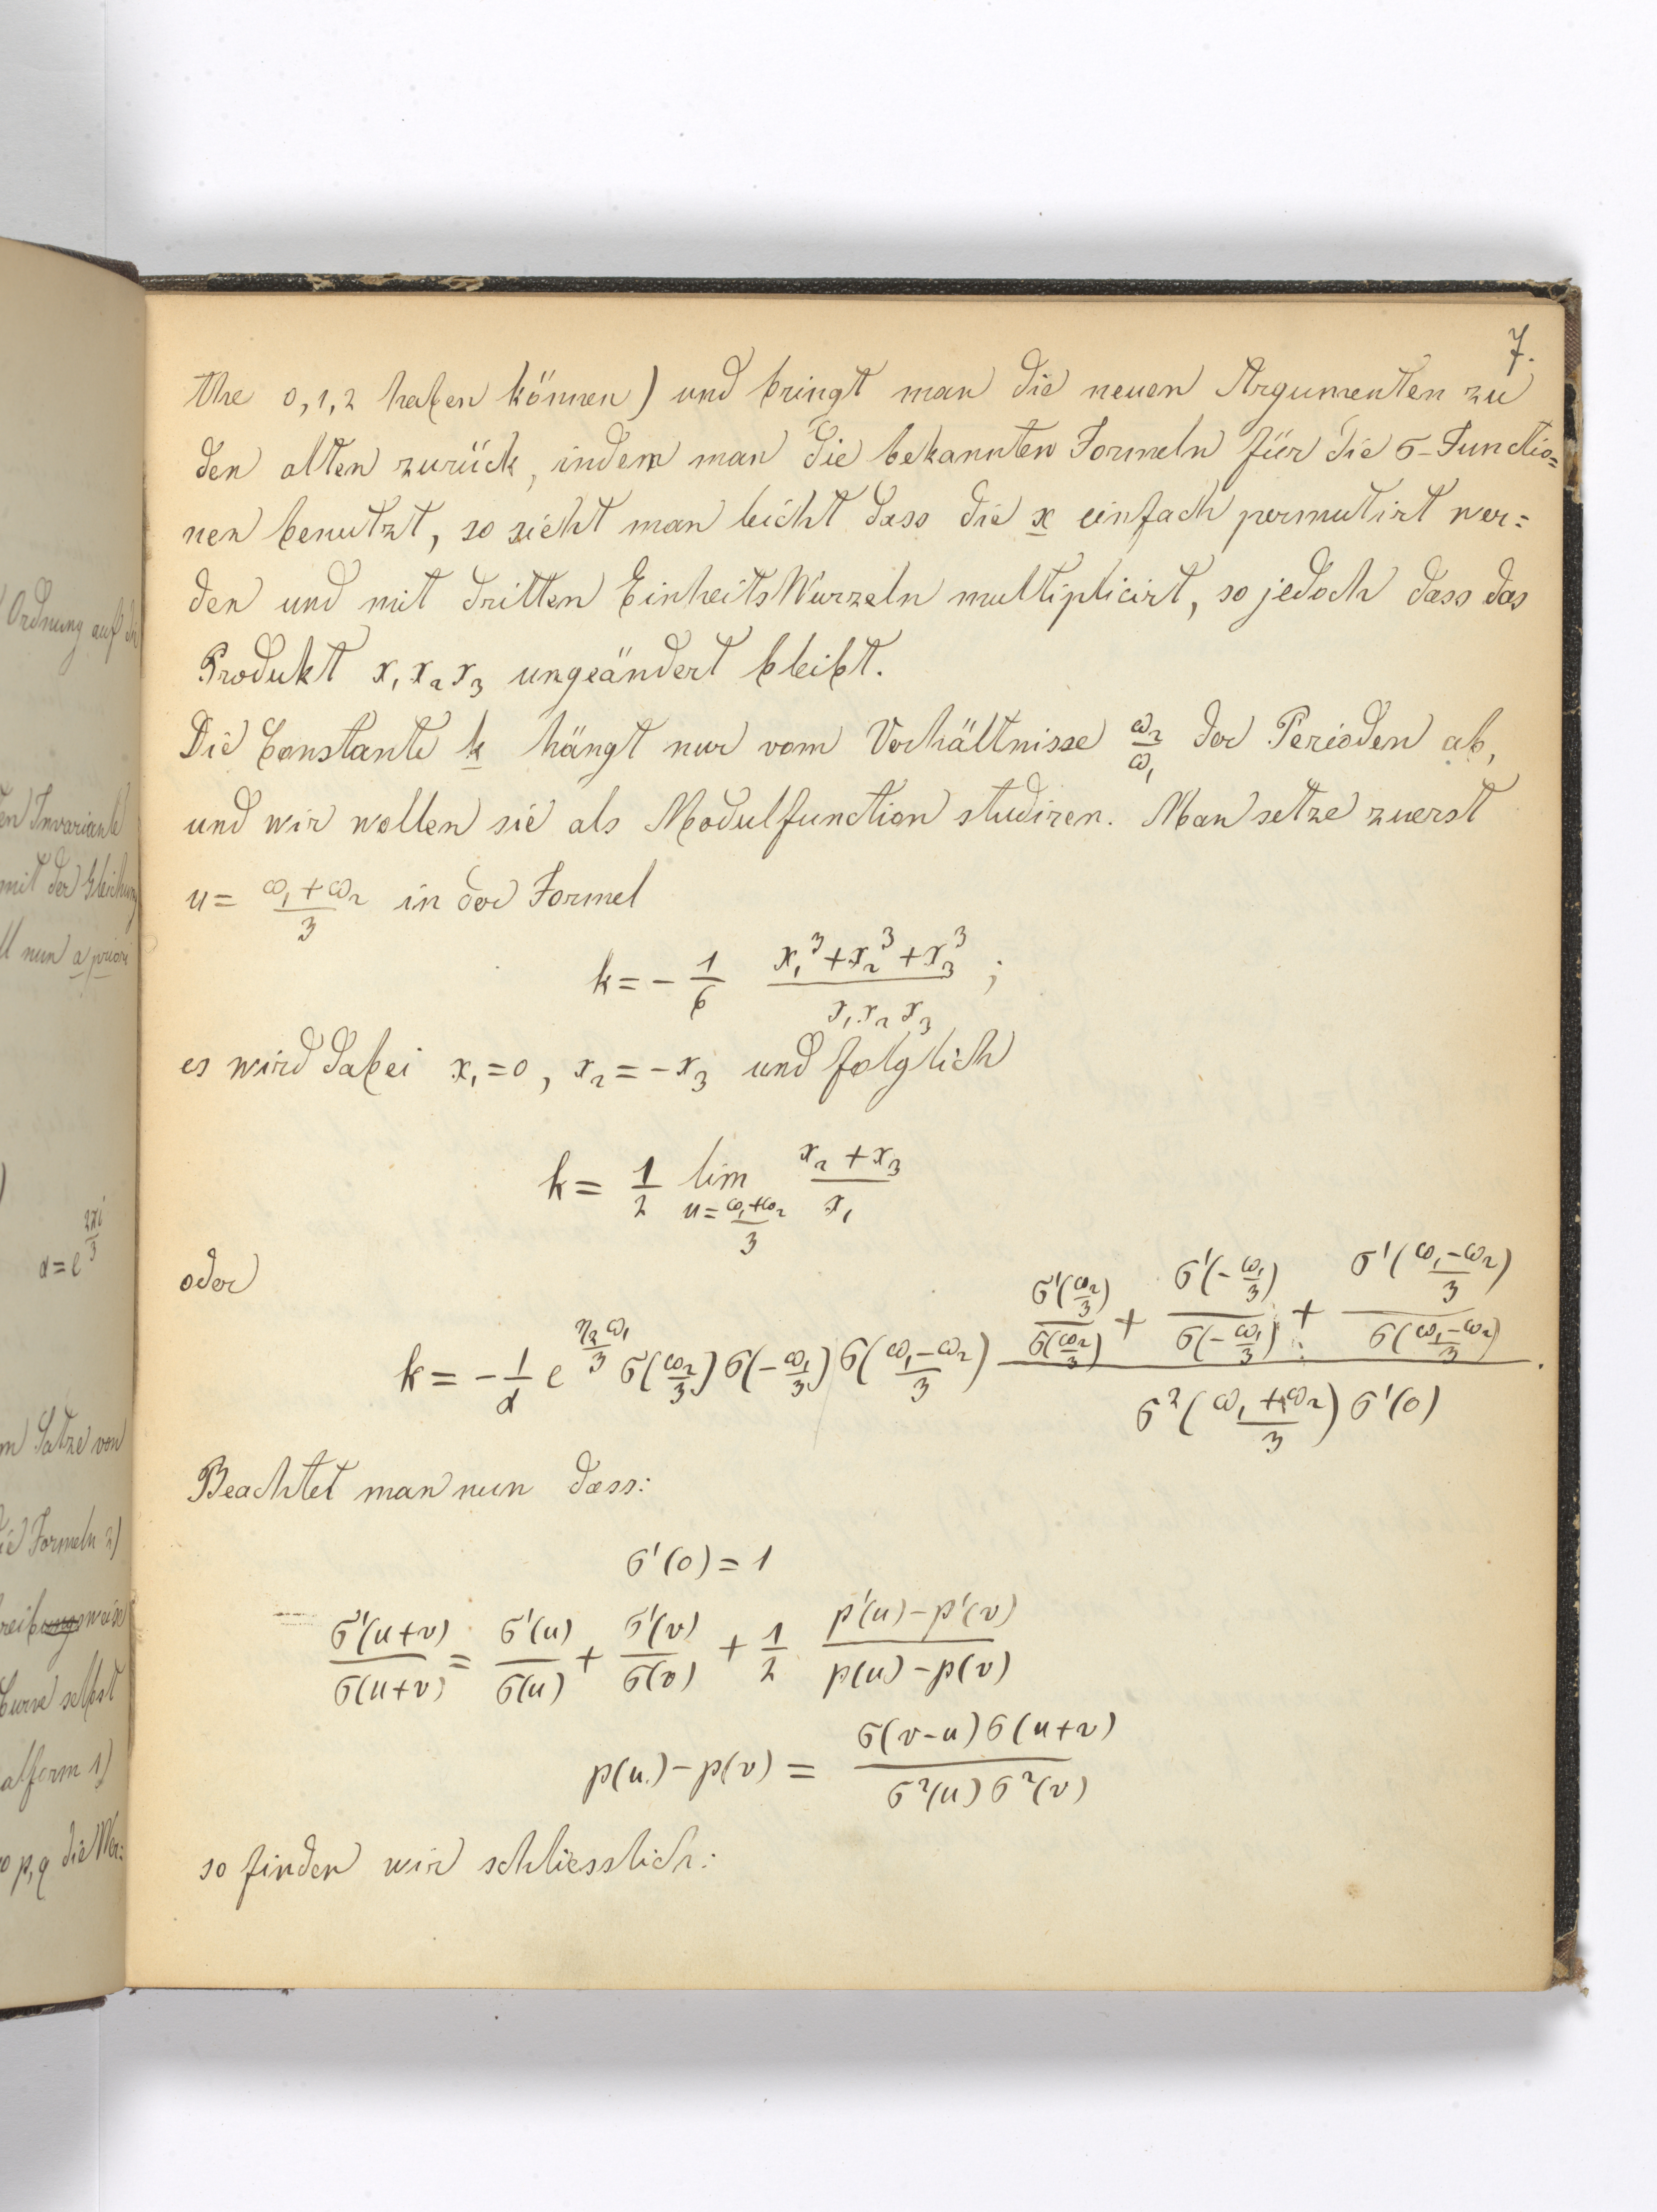 7.
the 0, 1, 2 haben können) und bringt man die neuen Argumenten zu
den alten zurück, indem man die bekannten Formeln für die σ-Functio=
nen benutzt, so sieht man leicht dass die x einfach permutirt wer=
den und mit dritten EinheitsWurzeln multiplicirt, so jedoch dass das
Produkt x₁ x₂ x₃ ungeändert bleibt.
Die Constante k hängt nur vom Verhältnisse ω₂/ω₁ der Perioden ab,
und wir wollen sie als Modulfunction studiren. Man setze zuerst
u = (ω₁+ω₂)/3 in der Formel
k = - 1/6 (x₁³+x₂³+x₃³)/(x₁x₂x₃) ;
es wird dabei x₁=0, x₂=-x₃ und folglich
k = 1/2 lim_{u=(ω₁+ω₂)/3} (x₂+x₃)/x₁
oder
k = - 1/α e^{η₂ω₁/3} σ(ω₂/3) σ(-ω₁/3) σ((ω₁-ω₂)/3) [σ'(ω₂/3)/σ(ω₂/3) + σ'(-ω₁/3)/σ(-ω₁/3) + σ'((ω₁-ω₂)/3)/σ((ω₁-ω₂)/3)] / [σ²((ω₁+ω₂)/3) σ'(0)].
Beachtet man nun dass:
σ'(0) = 1
σ'(u+v)/σ(u+v) = σ'(u)/σ(u) + σ'(v)/σ(v) + 1/2 (p'(u)-p'(v))/(p(u)-p(v))
p(u)-p(v) = σ(v-u)σ(u+v)/(σ²(u)σ²(v))
so finden wir schliesslich:
Ordnung auf di
en Invariante
mit der Gleichung
nun a priori
α=e^{2πi/3}
Satze von
die Formeln 2)
Curve selbst
alform 1)
p, q die Wer: